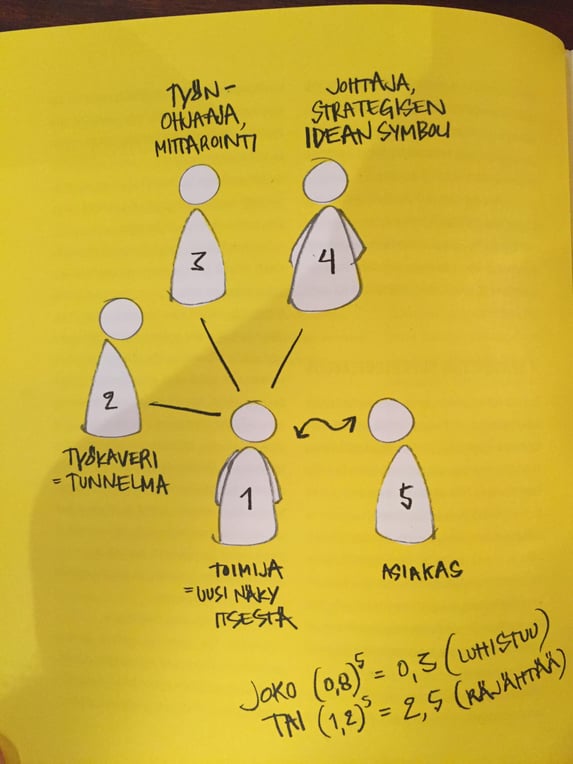 TYÖN-
OHJAAJA,
MITTAROINTI
JOHTAJA,
STRATEGISEN
IDEAN SYMBOLI
3
4
2
TYÖKAVERI
= TUNNELMA
1
5
TOIMIJA
= UUSI NÄKY
ITSESTÄ
ASIAKAS
JOKO (0,8)⁵ = 0,3 (LUHISTUU)
TAI (1,2)⁵ = 2,5 (RÄJÄHTÄÄ)